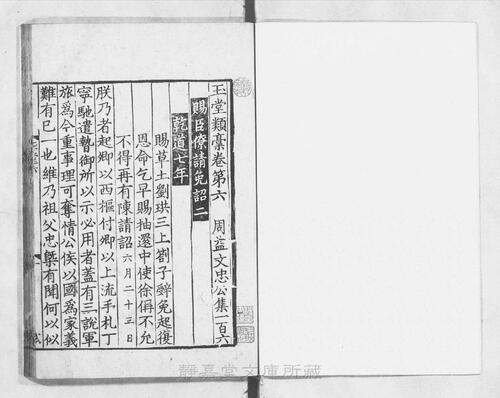 玉堂類藁卷第六 周益文忠公集一百六
賜臣僚請免詔二
乾道七年
賜草土劉珙三上劄子辭免起復
恩命乞早賜抽還中使徐偁不允
不得再有陳請詔六月二十三日
朕乃者起卿以西樞付卿以上流手札丁
寧馳遣贄御所以示必用者蓋有三説軍
旅爲今重事理可奪情公侯以國爲家義
難有已一也維乃祖父忠槩有聞何以似
靜嘉堂文庫所藏